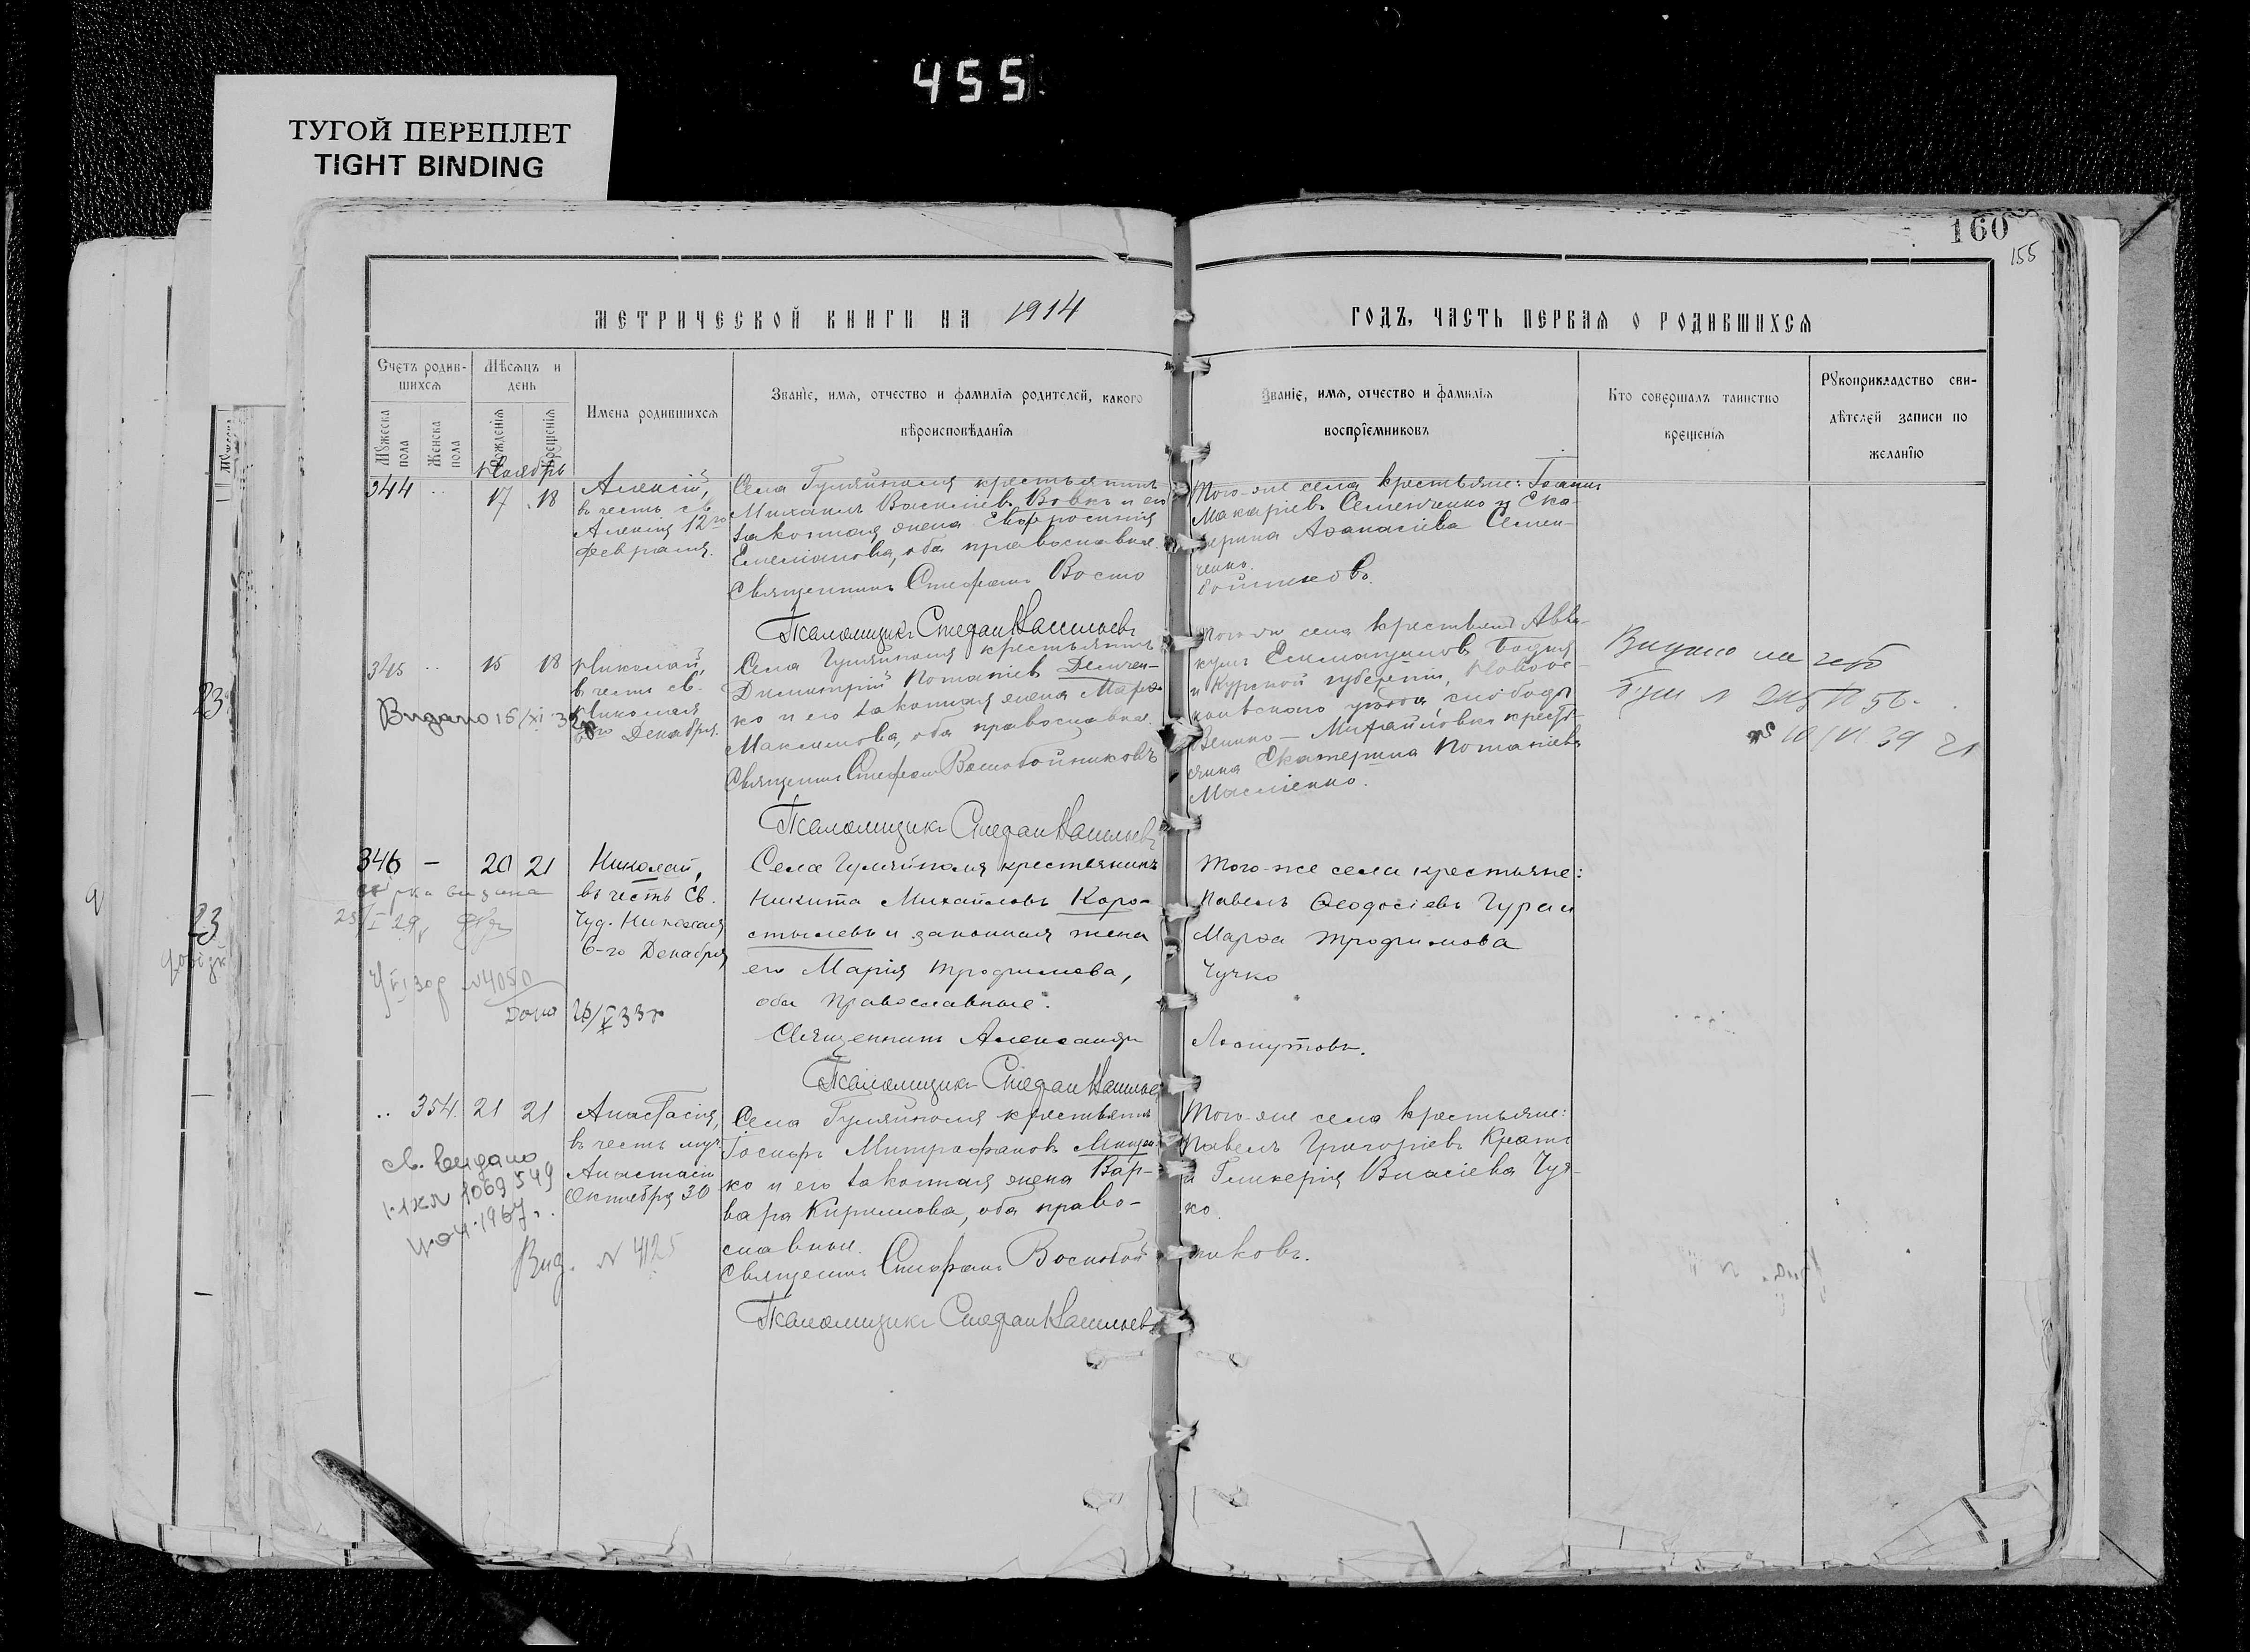 455
ТУГОЙ ПЕРЕПЛЕТ
TIGHT BINDING
160
155
МЕТРИЧЕСКОЙ КНИГИ НА 1914
ГОДЪ, ЧАСТЬ ПЕРВАЯ О РОДИВШИХСЯ
Счетъ родив-
шихся
Мѣсяцъ и
день
Мужеска
пола
Женска
пола
Рожденія
Крещенія
Имена родившихся
Званіе, имя, отчество и фамилія родителей, какого
вѣроисповѣданія
Званіе, имя, отчество и фамилія
воспріемниковъ
Кто совершалъ таинство
крещенія
Рукоприкладство сви-
дѣтелей записи по
желанію
Ноябрь
344 17 18
Алексій,
въ честь св.
Алексія 12го
февраля.
Села Гуляйполя крестьянинъ
Михаилъ Василіевъ Вовкъ и его
законная жена Евфросинія
Емеліанова, оба православные.
Священникъ Стефанъ Воско
бойниковъ.
Псаломщикъ Стефан Васильевъ
Того-же села крестьяне: Іоаннъ
Макаріевъ Семенченко и Ека-
терина Аѳанасіева Семен-
ченко.
345 15 18
Николай,
въ честь св.
Николая
6го Декабря.
Видано 15/XI 39
Села Гуляйполя крестьянинъ
Димитрій Потапіевъ Демчен-
ко и его законная жена Марѳа
Максимова, оба православные.
Священникъ Стефанъ Воскобойниковъ
Псаломщикъ Стефан Васильевъ
Того-же села крестьянинъ Авва-
кумъ
и Курской губерніи, Новоос-
кольскаго уѣзда, слободы
Велико-Михайловки кресть-
янка Екатерина Потапіева
Масліенко.
346 — 20 21
Николай,
въ честь Св.
Чуд. Николая
6-го Декабря
25/I 29
№4050
33
Села Гуляйполя крестьянинъ
Никита Михайловъ Коро-
стылевъ и законная жена
его Марія Трофимова,
оба Православные.
Священникъ Александръ Лоскутовъ.
Псаломщикъ Стефан Васильевъ
Того-же села крестьяне:
Павелъ Ѳеодосіевъ Гура и
Марѳа Трофимова
Чучко
354 21 21
Анастасія,
въ честь муч.
Анастасіи
Октября 30
св. видано
1069/549
1967г.
Вид. № 4125
Села Гуляйполя крестьянинъ
Іосифъ Митрофановъ Мищен-
ко и его законная жена Вар-
вара Кириллова, оба право-
славные.
Священникъ Стефанъ Воскобойниковъ.
Псаломщикъ Стефан Васильевъ
Того-же села крестьяне:
Павелъ Григоріевъ
и Гликерія Власіева Чуч-
ко.
23
23